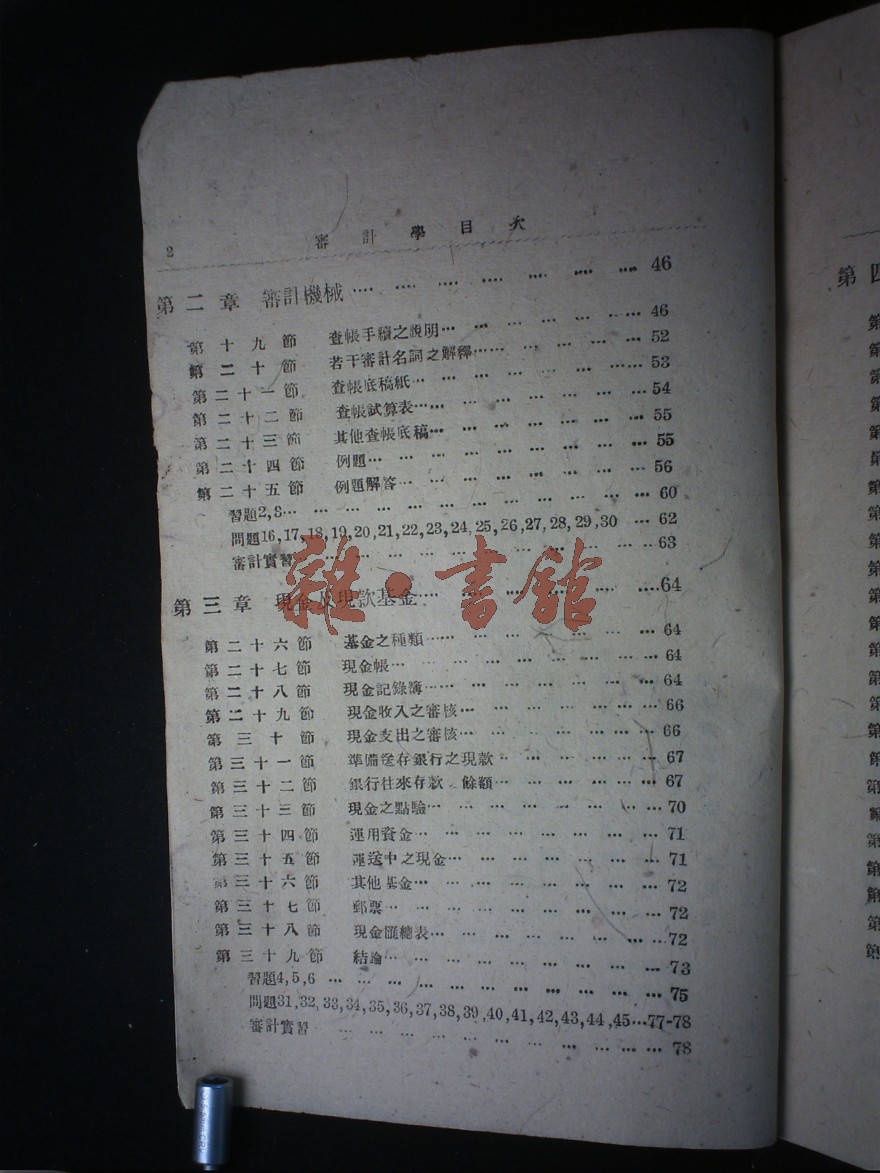 2 審計學目次
第二章 審計機械 … … … … … … … 46
第十九節 查帳手續之說明 … … … … … … 46
第二十節 若干審計名詞之解釋 … … … … … … 52
第二十一節 查帳底稿紙 … … … … … … … 53
第二十二節 查帳試算表 … … … … … … … 54
第二十三節 其他查帳底稿 … … … … … … … 55
第二十四節 例題 … … … … … … … … 55
第二十五節 例題解答 … … … … … … … … 56
習題2,3 … … … … … … … … … … 60
問題16,17,18,19,20,21,22,23,24,25,26,27,28,29,30 … 62
審計實習 … … … … … … … … … … 63
第三章 現金及現款基金 … … … … … 64
第二十六節 基金之種類 … … … … … … … 64
第二十七節 現金帳 … … … … … … … … 64
第二十八節 現金記錄簿 … … … … … … … 64
第二十九節 現金收入之審核 … … … … … … 66
第三十節 現金支出之審核 … … … … … … 66
第三十一節 準備送存銀行之現款 … … … … … 67
第三十二節 銀行往來存款 餘額 … … … … … 67
第三十三節 現金之點驗 … … … … … … … 70
第三十四節 運用資金 … … … … … … … 71
第三十五節 運送中之現金 … … … … … … 71
第三十六節 其他基金 … … … … … … … 72
第三十七節 郵票 … … … … … … … … 72
第三十八節 現金匯總表 … … … … … … … 72
第三十九節 結論 … … … … … … … … 73
習題4,5,6 … … … … … … … … … … 75
問題31,32,33,34,35,36,37,38,39,40,41,42,43,44,45…77-78
審計實習 … … … … … … … … … 78
雜·書館
第四
第
第
第
第
第
第
第
第
第
第
第
第
第
第
第
第
第
第
第
第
第
第
第
第